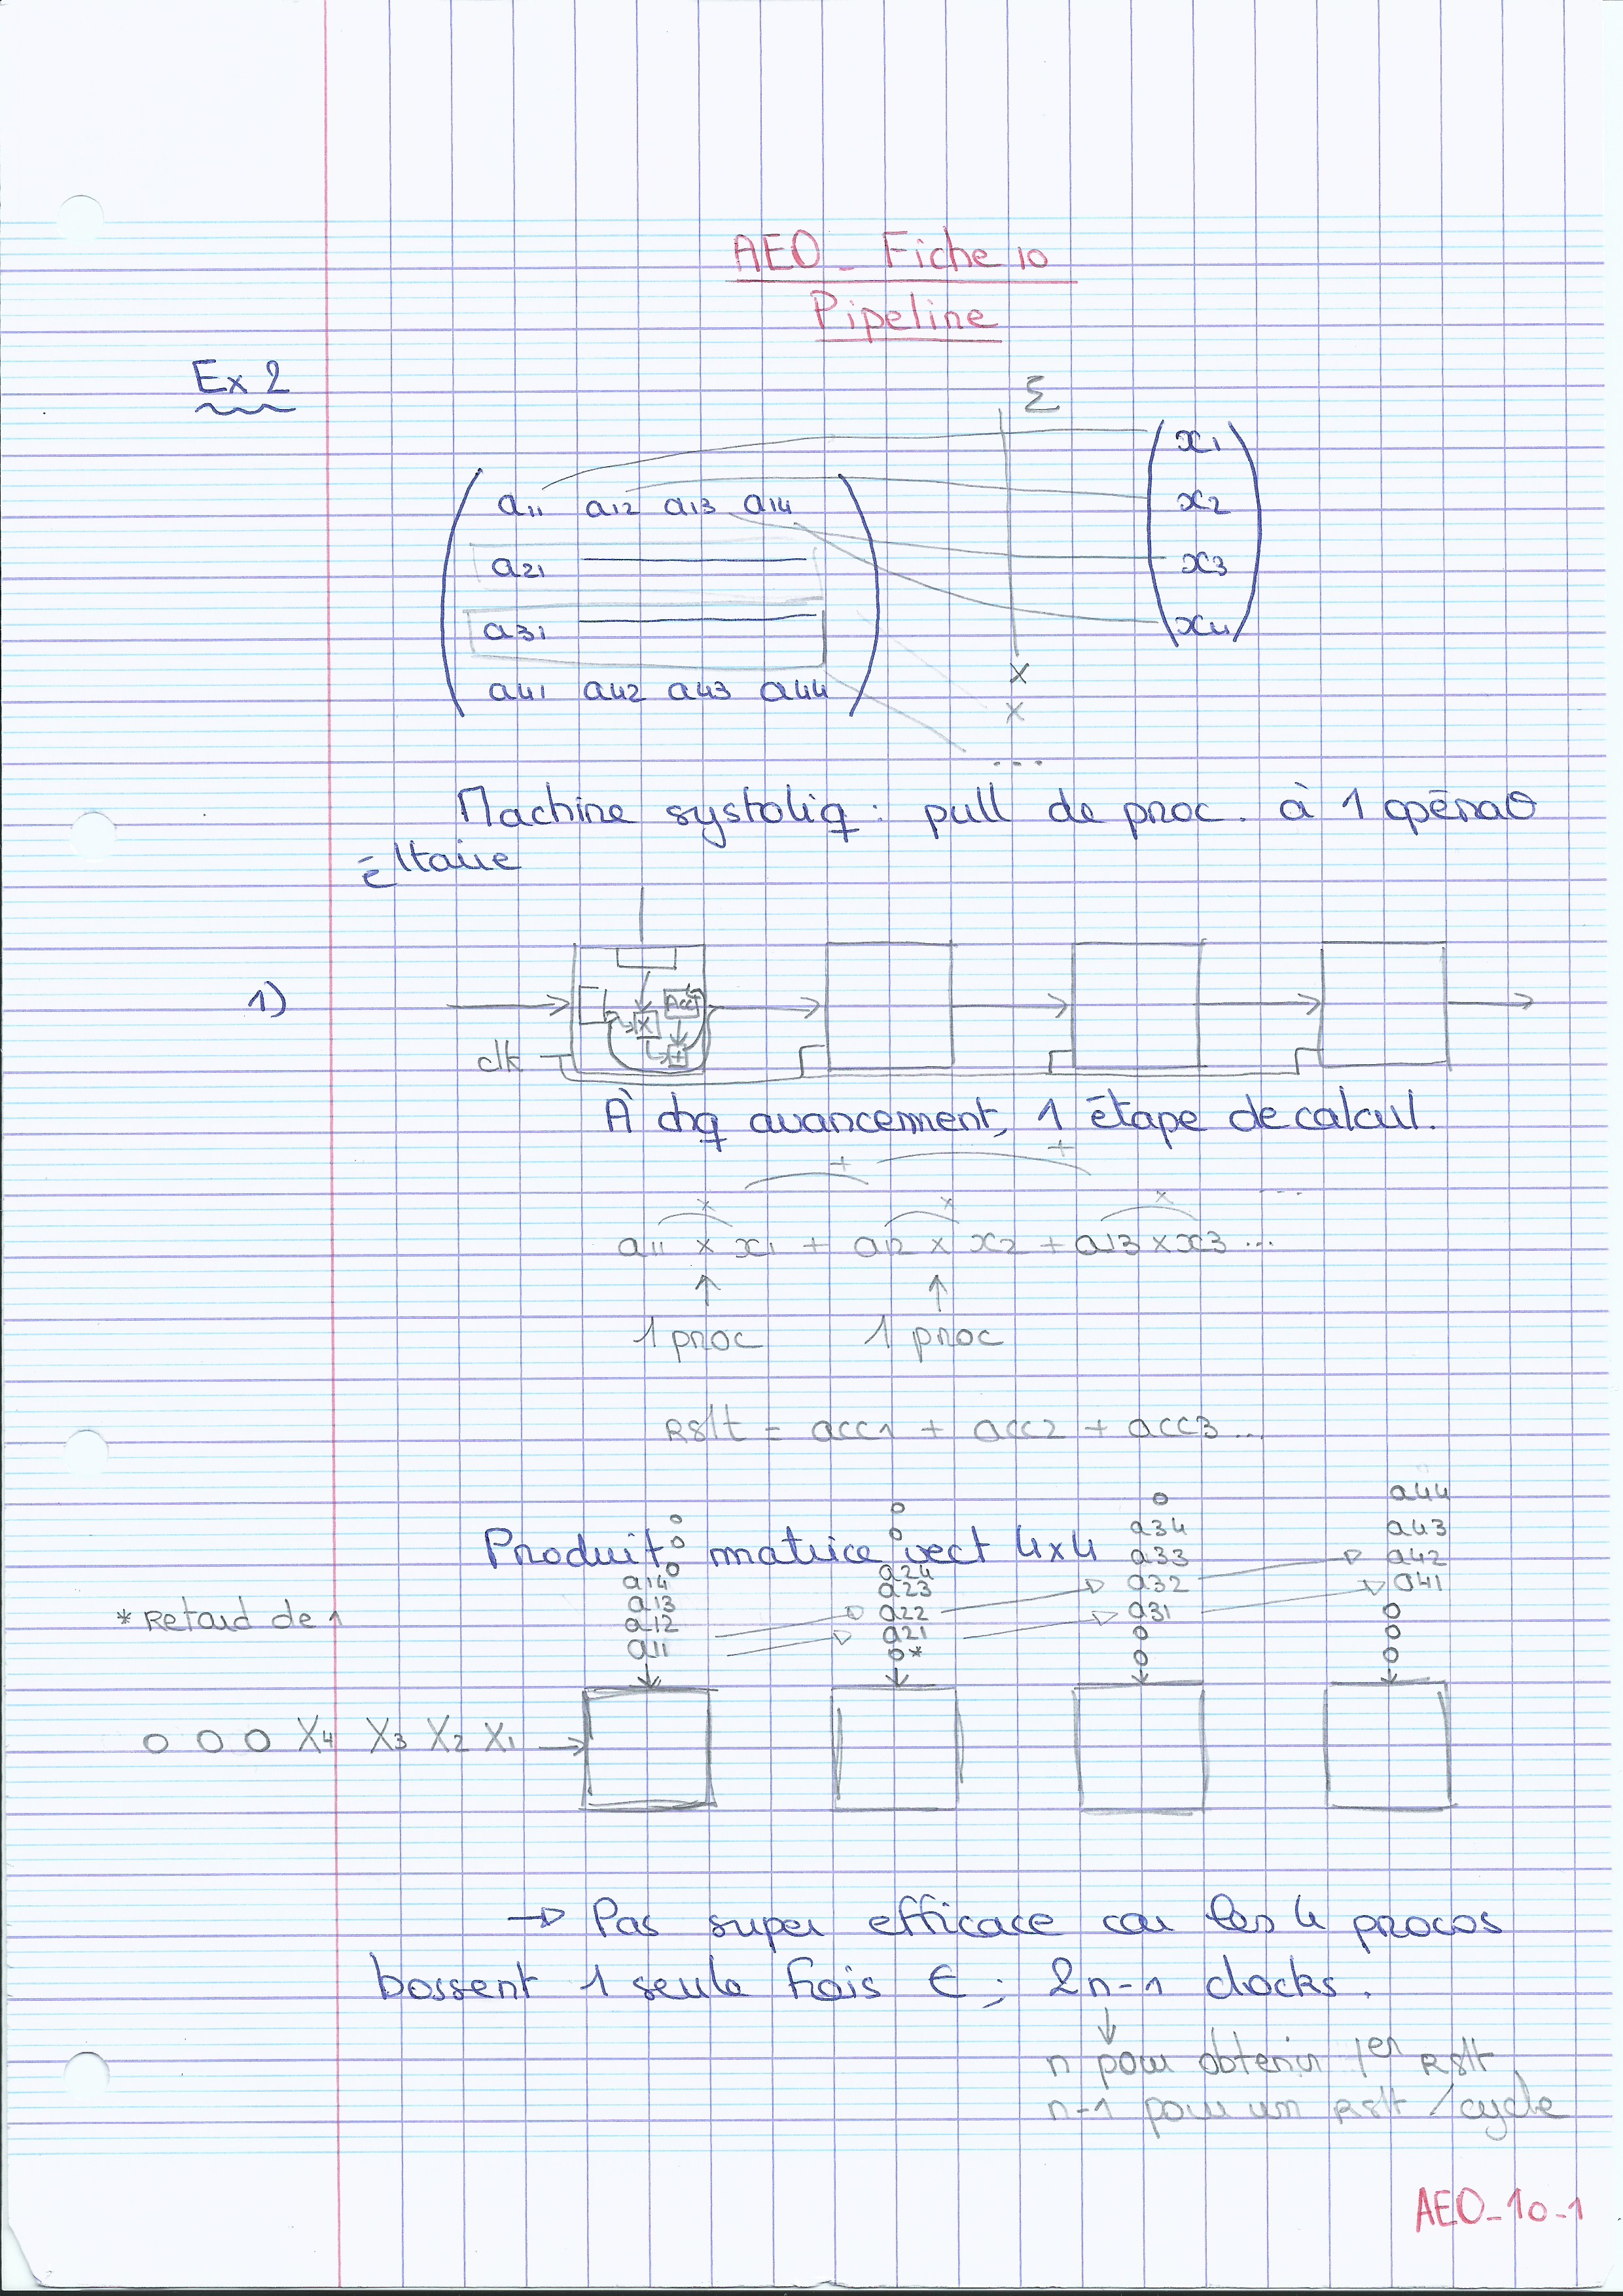 AEO_ Fiche 10
Pipeline
Ex 2
Σ
x1
a11 a12 a13 a14
x2
a21
x3
a31
x4
a41 a42 a43 a44
x
x
...
Machine systoliq : pull de proc. à 1 opéraθ
éltaire
1)
Acc
x
+
clk
À chq avancement, 1 étape de calcul.
+ +
x x x ...
a11 x x1 + a12 x x2 + a13 x x3 ...
↑ ↑
1 proc 1 proc
Rslt = acc1 + acc2 + acc3 ...
Produit matrice vect 4x4
0 0 0 a44
0 0 a34 a43
0 a24 a33 a42
a14 a23 a32 a41
a13 a22 a31 0
a12 a21 0 0
a11 0* 0 0
* Retard de 1
0 0 0 X4 X3 X2 X1
→ Pas super efficace car les 4 procos
bossent 1 seule fois € ; 2n-1 clocks.
↓
n pour obtenir 1er Rslt
n-1 pour un Rslt / cycle
AEO_10_1